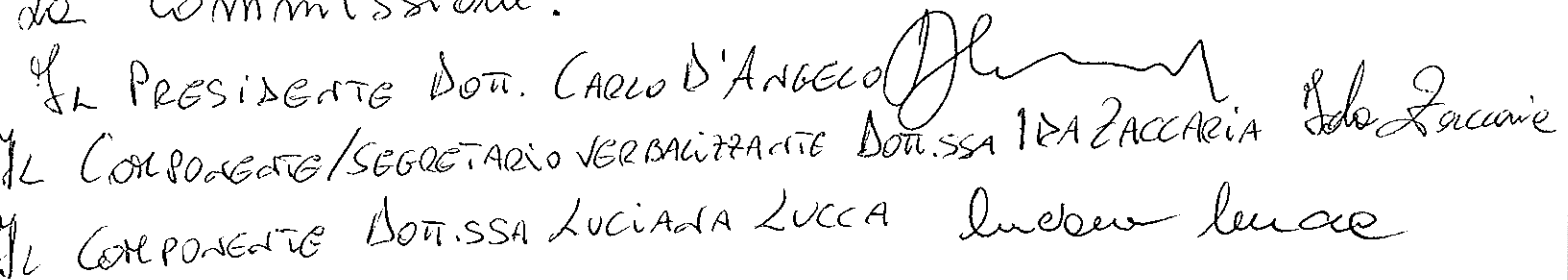 La Commissione.
Il PRESIDENTE DOTT. CARLO D'ANGELO
Il COMPONENTE/SEGRETARIO VERBALIZZANTE DOTT.SSA IDA ZACCARIA Ida Zaccaria
Il COMPONENTE DOTT.SSA LUCIANA LUCCA Luciana Lucca